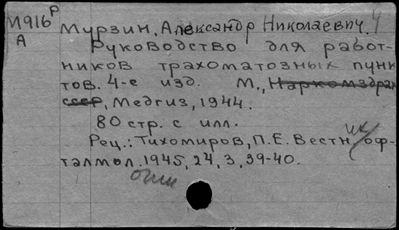 И916р Мурзин, Александр Николаевич. 4
А Руководство для работ-
ников трахоматозных пунк
тов. 4-е изд. М., Наркомздрав
СССР, Медгиз, 1944.
80 стр. с илл.
Рец.: Тихомиров, П.Е. Вестник оф-
талмол. 1945, 24, 3, 39-40.